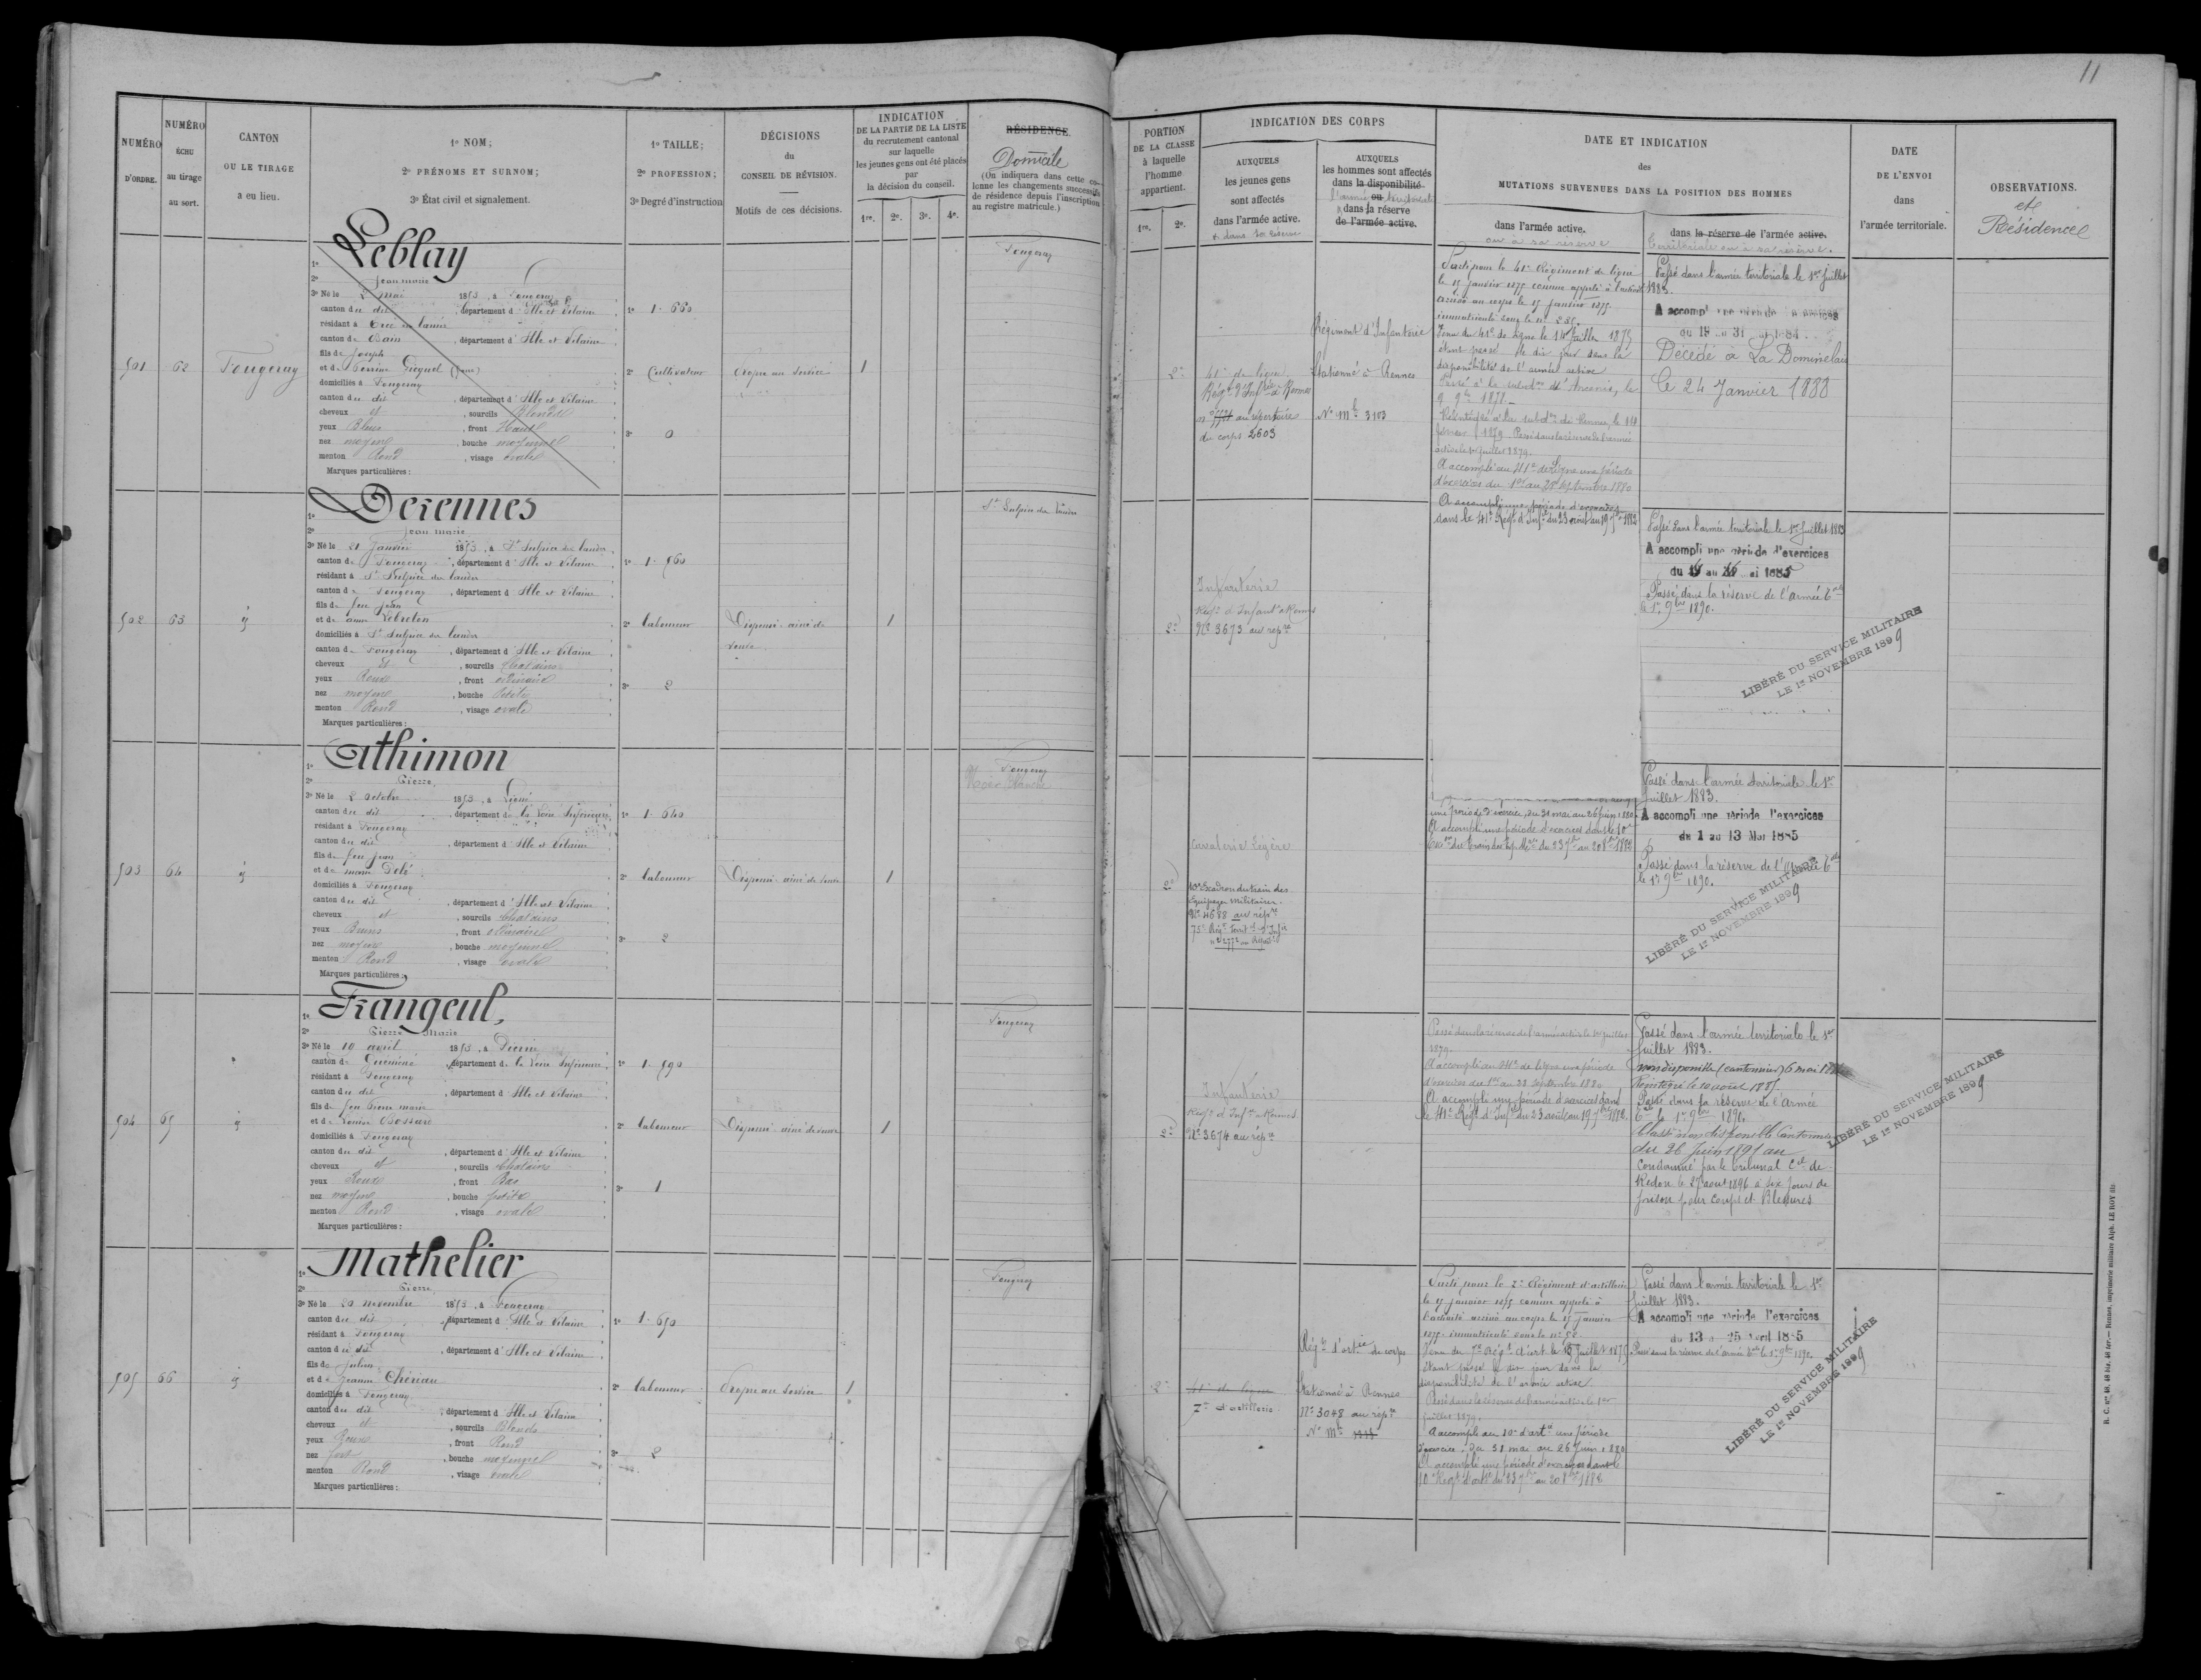 11
NUMÉRO
D'ORDRE.
NUMÉRO
ÉCHU
au tirage
au sort.
CANTON
OU LE TIRAGE
a eu lieu.
1º NOM;
2º PRÉNOMS ET SURNOM;
3º État civil et signalement.
1º TAILLE;
2º PROFESSION;
3º Degré d'instruction
DÉCISIONS
du
CONSEIL DE RÉVISION.
Motifs de ces décisions.
INDICATION
DE LA PARTIE DE LA LISTE
du recrutement cantonal
sur laquelle
les jeunes gens ont été placés
par
la décision du conseil.
1re. 2e. 3e. 4e.
RÉSIDENCE
Domicile
(On indiquera dans cette co-
lonne les changements successifs
de résidence depuis l'inscription
au registre matricule.)
PORTION
DE LA CLASSE
à laquelle
l'homme
appartient.
1re. 2e.
INDICATION DES CORPS
AUXQUELS
les jeunes gens
sont affectés
dans l'armée active.
et dans sa réserve
AUXQUELS
les hommes sont affectés
dans la disponibilité
ou
dans la réserve
de l'armée active.
DATE ET INDICATION
des
MUTATIONS SURVENUES DANS LA POSITION DES HOMMES
dans l'armée active.
ou à sa réserve
dans la réserve de l'armée active.
territoriale ou à sa réserve.
DATE
DE L'ENVOI
dans
l'armée territoriale.
OBSERVATIONS.
et
Résidence
501 62 Fougeray
1º Leblay
2º Jean marie
3º Né le 2 Mai 1853, à Fougeray
canton du dit, département d'Ille et Vilaine
résidant à Ercé en lamée
canton de Bain, département d'Ille et Vilaine
fils de Joseph
et de Perrine
domiciliés à Fougeray
canton du dit, département d'Ille et Vilaine
cheveux et, sourcils Blonds
yeux Bleus, front Haut
nez moyen, bouche moyenne
menton Rond, visage ovale
Marques particulières :
1º 1.660
2º Cultivateur
3º 0
Propre au service
1
Fougeray
2e
41e de ligne
Régt d'Infrie à Rennes
au répertoire
du corps 2603
Régiment d'Infanterie
Stationné à Rennes
Nº Mle 3103
Parti pour le 41e Régiment de ligne
le 15 janvier 1875 comme appelé à l'activité
arrivé au corps le 15 janvier 1875.
immatriculé sous le nº
Venu du 41e de ligne le 14 Juillet 1875
étant passé le dit jour dans la
disponibilité de l'armée active
Passé à la subdon d'Ancenis, le
9 9bre 1878.
Réintégré à la subdon de Rennes, le 14
février 1879. Passé dans la réserve de l'armée
active le 1er juillet 1879.
A accompli au 41e de ligne une période
d'exercices du 1er au 28 septembre 1880
Passé dans l'armée territoriale le 1er Juillet
1883.
A accompli une période d'exercices
du 19 au 31 1884.
Décédé à La Dominelais
le 24 Janvier 1888
502 63 id
1º Derennes
2º Jean marie
3º Né le 21 Janvier 1853, à St Sulpice des landes
canton de Fougeray, département d'Ille et Vilaine
résidant à St Sulpice des landes
canton de Fougeray, département d'Ille et Vilaine
fils de feu Jean
et de anne Lebreton
domiciliés à St Sulpice des landes
canton de Fougeray, département d'Ille et Vilaine
cheveux et, sourcils Chatains
yeux Roux, front ordinaire
nez moyen, bouche Petite
menton Rond, visage ovale
Marques particulières :
1º 1.560
2º laboureur
3º 2
Dispensé aîné de
veuve
1
St Sulpice des landes
2e
Infanterie
Régt d'Infant à Rennes
Nº 3673 au répre
A accompli une période d'exercices
dans le 41e Régt d'Infie du 23 août au 19 7bre 1882
Passé dans l'armée territoriale le 1er Juillet 1883
A accompli une période d'exercices
du au mai 1885
Passé dans la réserve de l'armée tale
le 1er 9bre 1890.
LIBÉRÉ DU SERVICE MILITAIRE
LE 1er NOVEMBRE 1899
503 64 id
1º Athimon
2º Pierre
3º Né le 2 octobre 1853, à Ligné
canton du dit, département de la Loire Inférieure
résidant à Fougeray
canton du dit, département d'Ille et Vilaine
fils de feu Jean
et de marie
domiciliés à Fougeray
canton du dit, département d'Ille et Vilaine
cheveux et, sourcils Chatains
yeux Bruns, front ordinaire
nez moyen, bouche moyenne
menton Rond, visage ovale
Marques particulières :
1º 1.640
2º laboureur
3º 2
Dispensé aîné de veuve
1
Fougeray
2e
Cavalerie Légère
10e Escadron du train des
Equipages Militaires.
Nº 4688 au répre
75e Régt Territ d'Infie
nº 2772 au Répre
une période d'exercice, du 31 mai au 26 juin 1880
A accompli une période d'exercices dans le 10e
Escon du train des Eq. Mres du 23 7bre au 20 8bre 1882
Passé dans l'armée territoriale le 1er
Juillet 1883.
A accompli une période d'exercices
du 1 au 13 Mai 1885
Passé dans la réserve de l'Armée tale
le 1er 9bre 1890.
LIBÉRÉ DU SERVICE MILITAIRE
LE 1er NOVEMBRE 1899
504 65 id
1º Frangeul,
2º Pierre Marie
3º Né le 10 avril 1853, à Pierric
canton de Guéméné, département de la Loire Inférieure
résidant à Fougeray
canton du dit, département d'Ille et Vilaine
fils de feu Pierre marie
et de Louise Bossard
domiciliés à Fougeray
canton du dit, département d'Ille et Vilaine
cheveux et, sourcils Chatains
yeux Roux, front Bas
nez moyen, bouche petite
menton Rond, visage ovale
Marques particulières :
1º 1.590
2º laboureur
3º 1
Dispensé aîné de veuve
1
Fougeray
2e
Infanterie
Régt d'Infie à Rennes
Nº 3674 au répre
Passé dans la réserve de l'armée active le 1er Juillet
1879.
A accompli au 41e de ligne une période
d'exercices du 1er au 28 Septembre 1880
A accompli une période d'exercices dans
le 41e Régt d'Infie du 23 août au 19 7bre 1882.
Passé dans l'armée territoriale le 1er
Juillet 1883.
non disponible (cantonnier) 6 mai
Réintégré le 10 août 1885
Passé dans la réserve de l'Armée
tale le 1er 9bre 1890.
Classé non disponible Cantonnier
du 26 Juin 1891 au
Condamné par le tribunal Cel de
Redon le 27 aout 1896 à six jours de
prison pour coups et Blessures
LIBÉRÉ DU SERVICE MILITAIRE
LE 1er NOVEMBRE 1899
505 66 id
1º Mathelier
2º Pierre
3º Né le 20 novembre 1853, à Fougeray
canton du dit, département d'Ille et Vilaine
résidant à Fougeray
canton du dit, département d'Ille et Vilaine
fils de Julien
et de Jeanne Chériau
domiciliés à Fougeray
canton du dit, département d'Ille et Vilaine
cheveux et, sourcils Blonds
yeux Roux, front Rond
nez fort, bouche moyenne
menton Rond, visage ovale
Marques particulières :
1º 1.690
2º laboureur
3º 2
Propre au service
1
Fougeray
2e
41e de ligne
7e d'artillerie
Régt d'artie de corps
Stationné à Rennes
Nº 3048 au répre
Nº Mle
Parti pour le 7e Régiment d'artillerie
le 15 janvier 1875 comme appelé à
l'activité arrivé au corps le 15 janvier
1875. immatriculé sous le nº
Venu du 7e Régt d'art. le Juillet 1875
étant passé le dit jour dans la
disponibilité de l'armée active.
Passé dans la réserve de l'armée active le 1er
Juillet 1879.
A accompli au 10e d'artie une période
d'exercice du 31 mai au 26 Juin 1880
A accompli une période d'exercices dans le
10e Régt d'artie du 23 7bre au 20 8bre 1882
Passé dans l'armée territoriale le 1er
Juillet 1883.
A accompli une période d'exercices
du 13 au 25 Avril 1885
Passé dans la réserve de l'armée tale le 1er 9bre 1890.
LIBÉRÉ DU SERVICE MILITAIRE
LE 1er NOVEMBRE 1899
Rennes, imprimerie militaire Alph. LE ROY fils